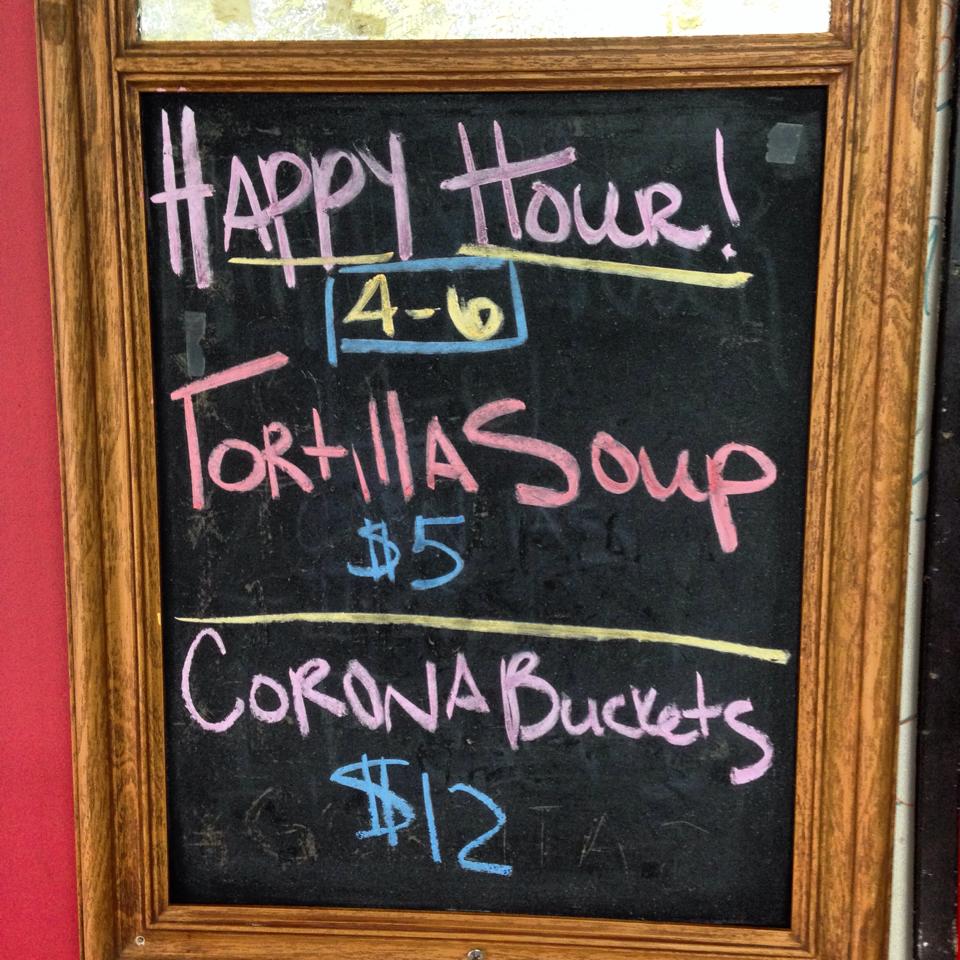 Happy Hour!
4-6
Tortilla Soup
$5
Corona Buckets
$12